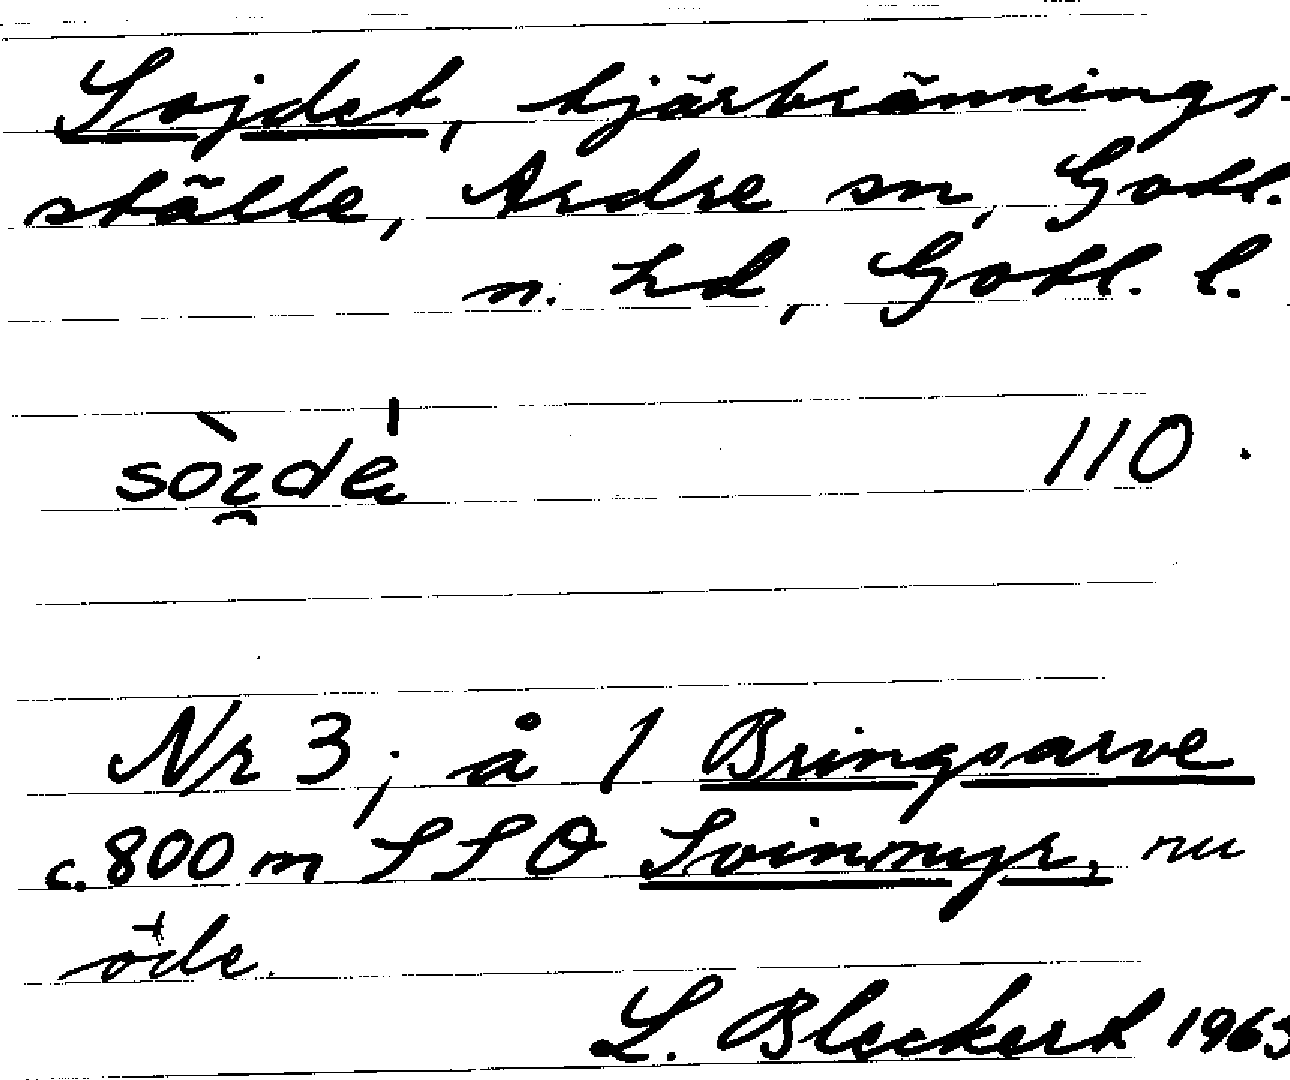 Sojdet, tjärbrännings-
ställe, Ardre sn, Gotl.
n. hd, Gotl. l.
110.
Nr 3; å 1 Bringsarve
c. 800 m SSO Svinmyr, nu
öde.
L. Bleckert 1963